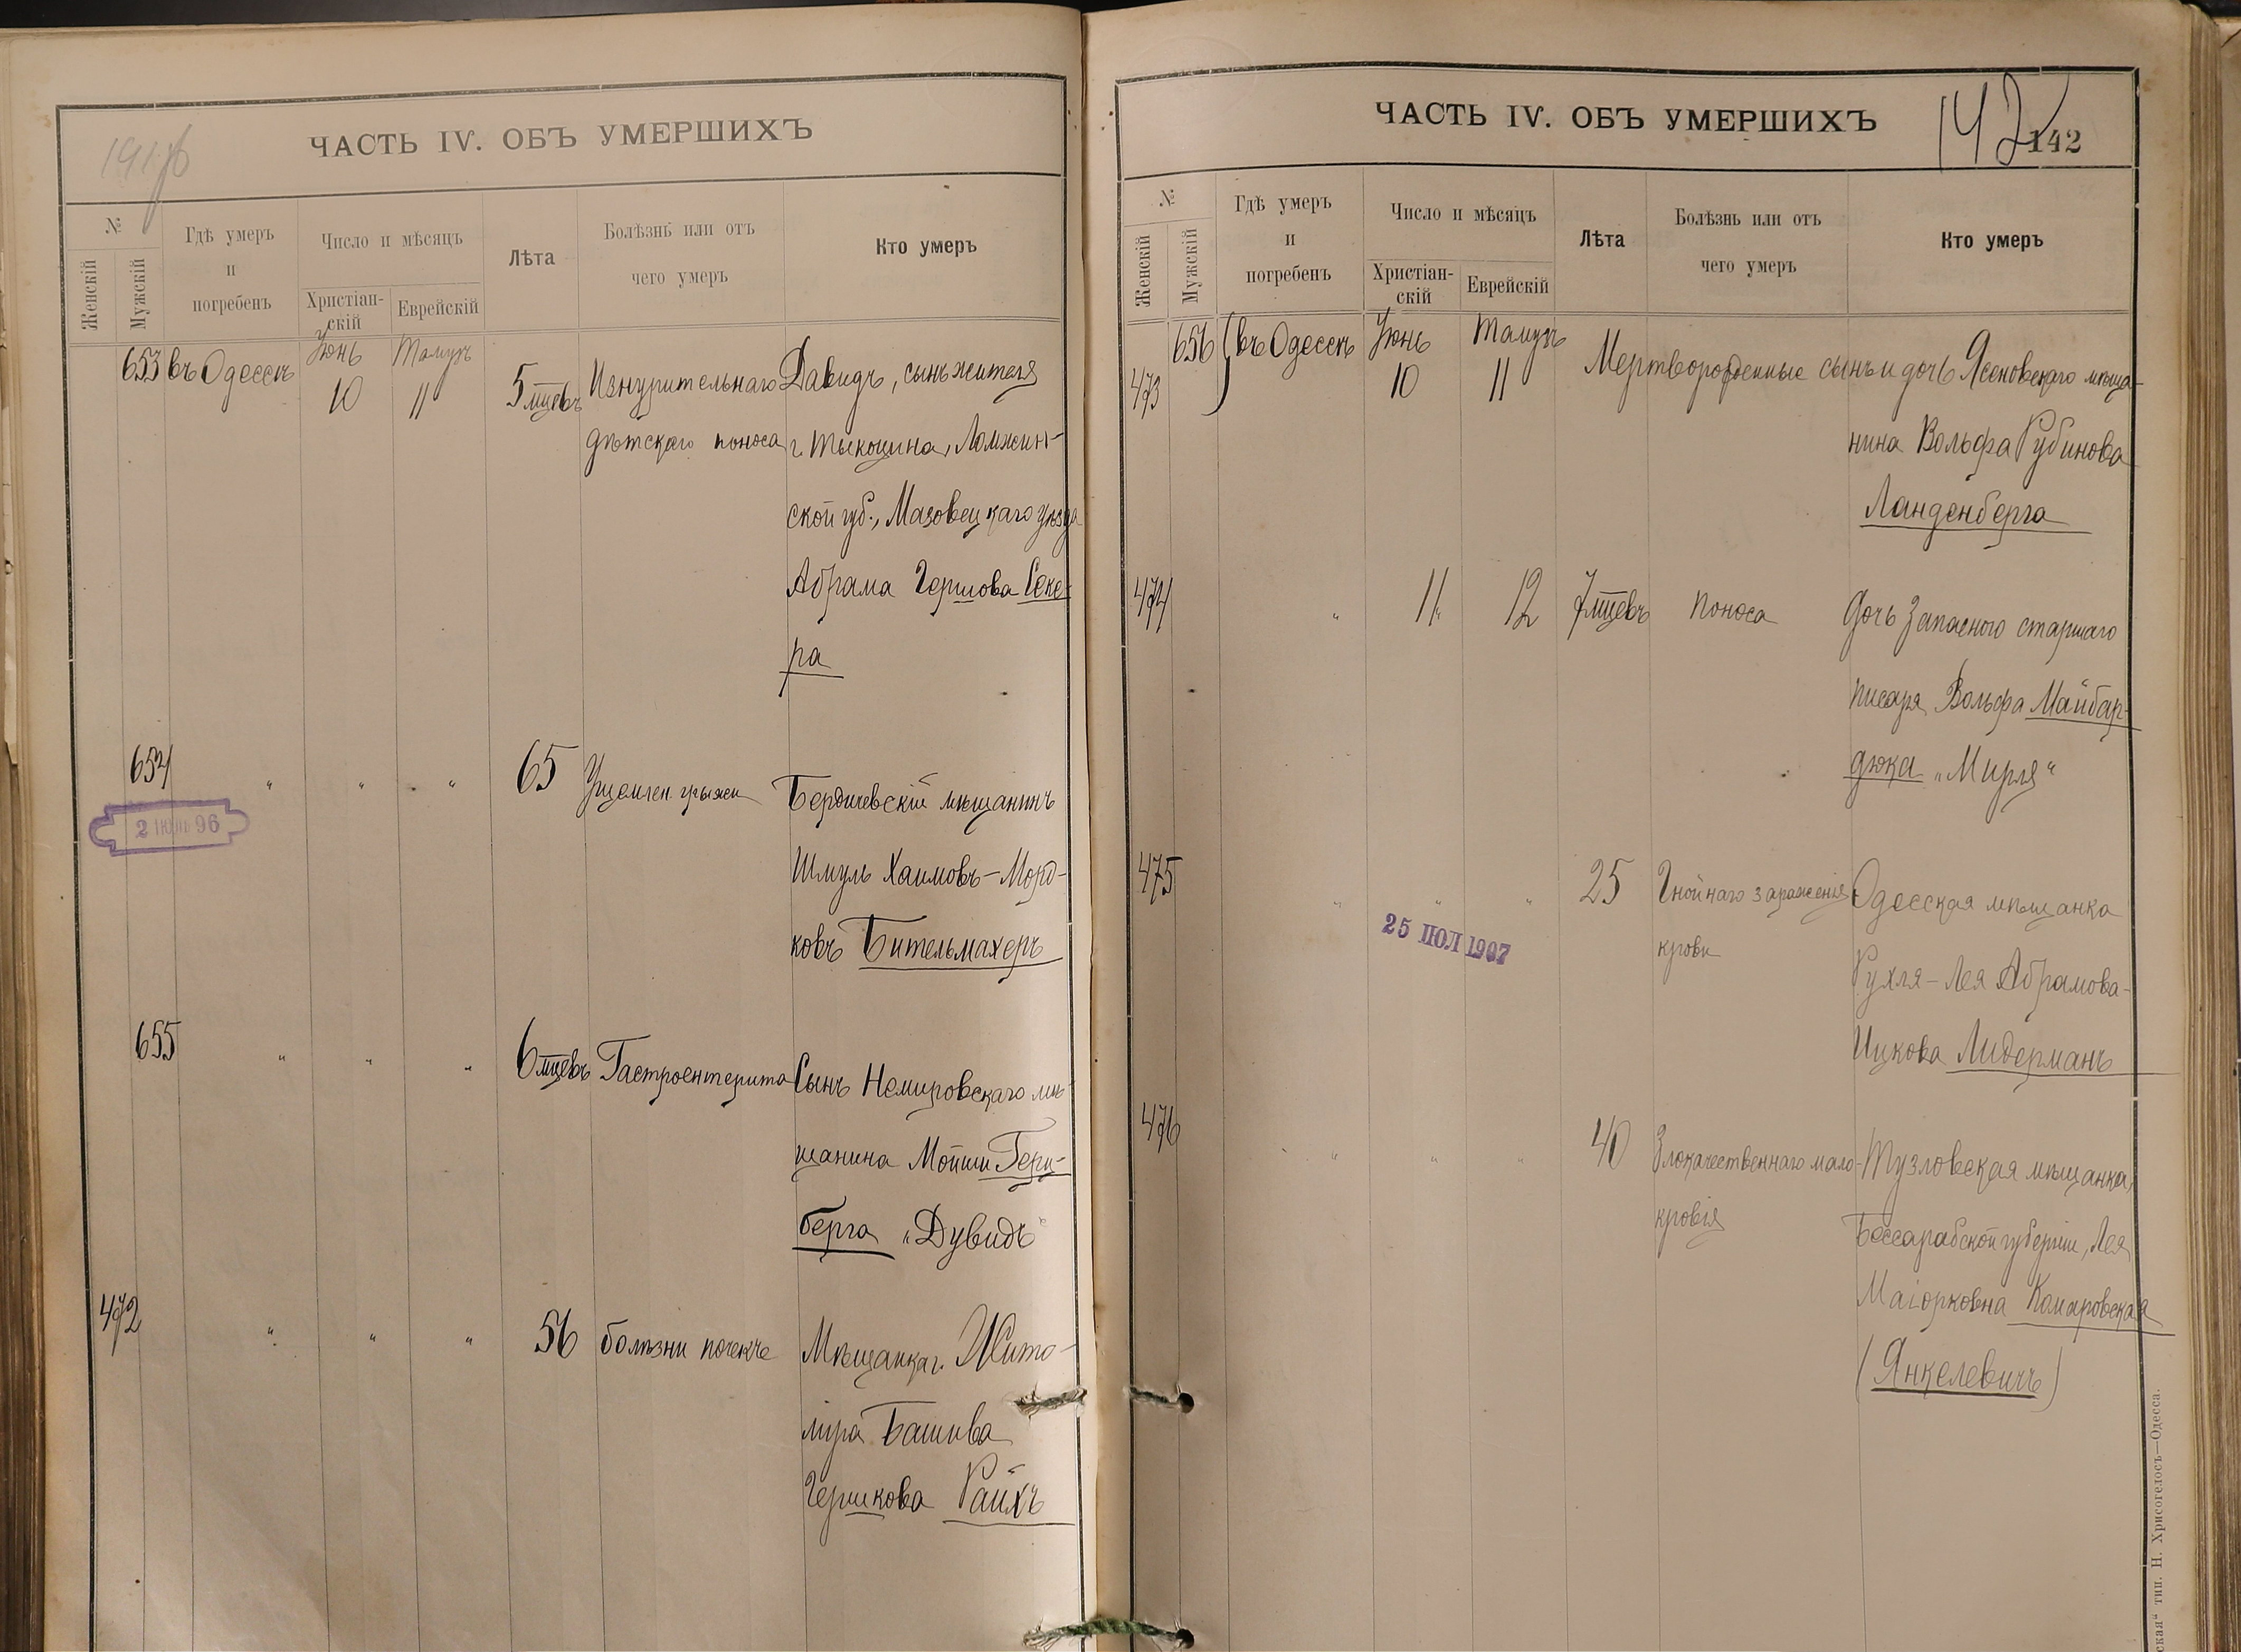 191
ЧАСТЬ IV. ОБЪ УМЕРШИХЪ
№
Женскій
Мужскій
Гдѣ умеръ
и
погребенъ
Число и мѣсяцъ
Христіан-
скій
Еврейскій
Лѣта
Болѣзнь или отъ
чего умеръ
Кто умеръ
653 въ Одессѣ Іюнь Тамузъ
10 11 5 мцевъ Изнурительнаго Давидъ, сынъ жителя
дѣтскаго поноса г. Тыкоцина, Ломжин-
ской губ., Мазовецкаго уѣзда
Абрама Гершова Секе-
ра
654 " " " 65 Ущемлен. грыжи Бердичевскій мѣщанинъ
2 ІЮЛЬ 96
Шмуль Хаимовъ-Морд-
ковъ Бительмахеръ
655 " " " 6 мцевъ Гастроентерита Сынъ Немировскаго мѣ-
щанина Мойши Герш-
берга „Дувидъ"
472 " " " 56 болѣзни почекъ Мѣщанка г. Жито-
міра Башива
Гершкова Райхъ
ЧАСТЬ IV. ОБЪ УМЕРШИХЪ
142
142
№
Женскій
Мужскій
Гдѣ умеръ
и
погребенъ
Число и мѣсяцъ
Христіан-
скій
Еврейскій
Лѣта
Болѣзнь или отъ
чего умеръ
Кто умеръ
656 въ Одессѣ Іюнь Тамузъ
473 10 11 Мертворожденные сынъ и дочь Ясеновскаго мѣща-
нина Вольфа Рубинова
Ланденберга
474 " 11 12 7 мцевъ поноса Дочь запасного старшаго
писаря Вольфа Майбар-
дюка „Мирля"
475 " " " 25 Гнойнаго зараженія Одесская мѣщанка
крови
25 ІЮЛ 1907
Рухля-Лея Абрамова-
Ицкова Лидерманъ
476 " " " 40 Злокачественнаго мало- Тузловская мѣщанка,
кровія Бессарабской губерніи, Лея
Маіорковна Комаровская
(Янкелевичъ)
ская" тип. Н. Хрисогелосъ—Одесса.